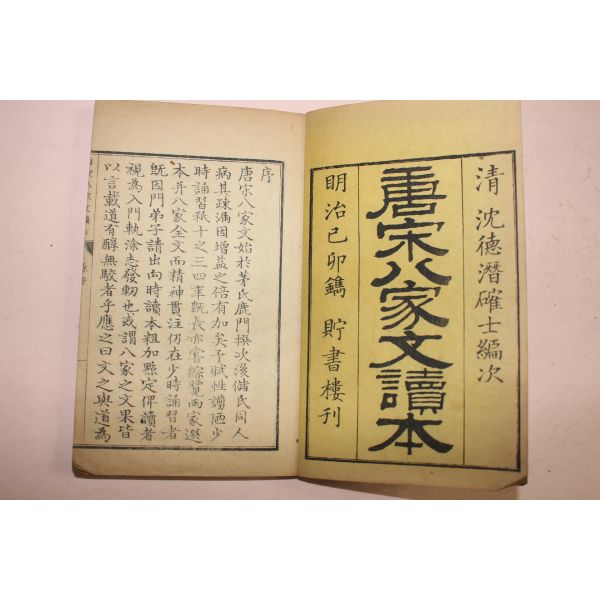 清 沈德潛確士編次
唐宋八家文讀本
明治己卯鐫 貯書樓刊
序
唐宋八家文始於茅氏鹿門撰次後儲氏同人
病其疎漏因增益之倍有加矣予賦性謭陋少
時誦習秪十之三四年既長亦嘗綜覽兩家選
本并八家全文而精神貫注仍在少時誦習者
旣因門弟子請出向時讀本粗加點定俾讀者
視為入門軌涂志發軔也或謂八家之文果皆
以言載道有醇無駁者乎應之曰文之與道為